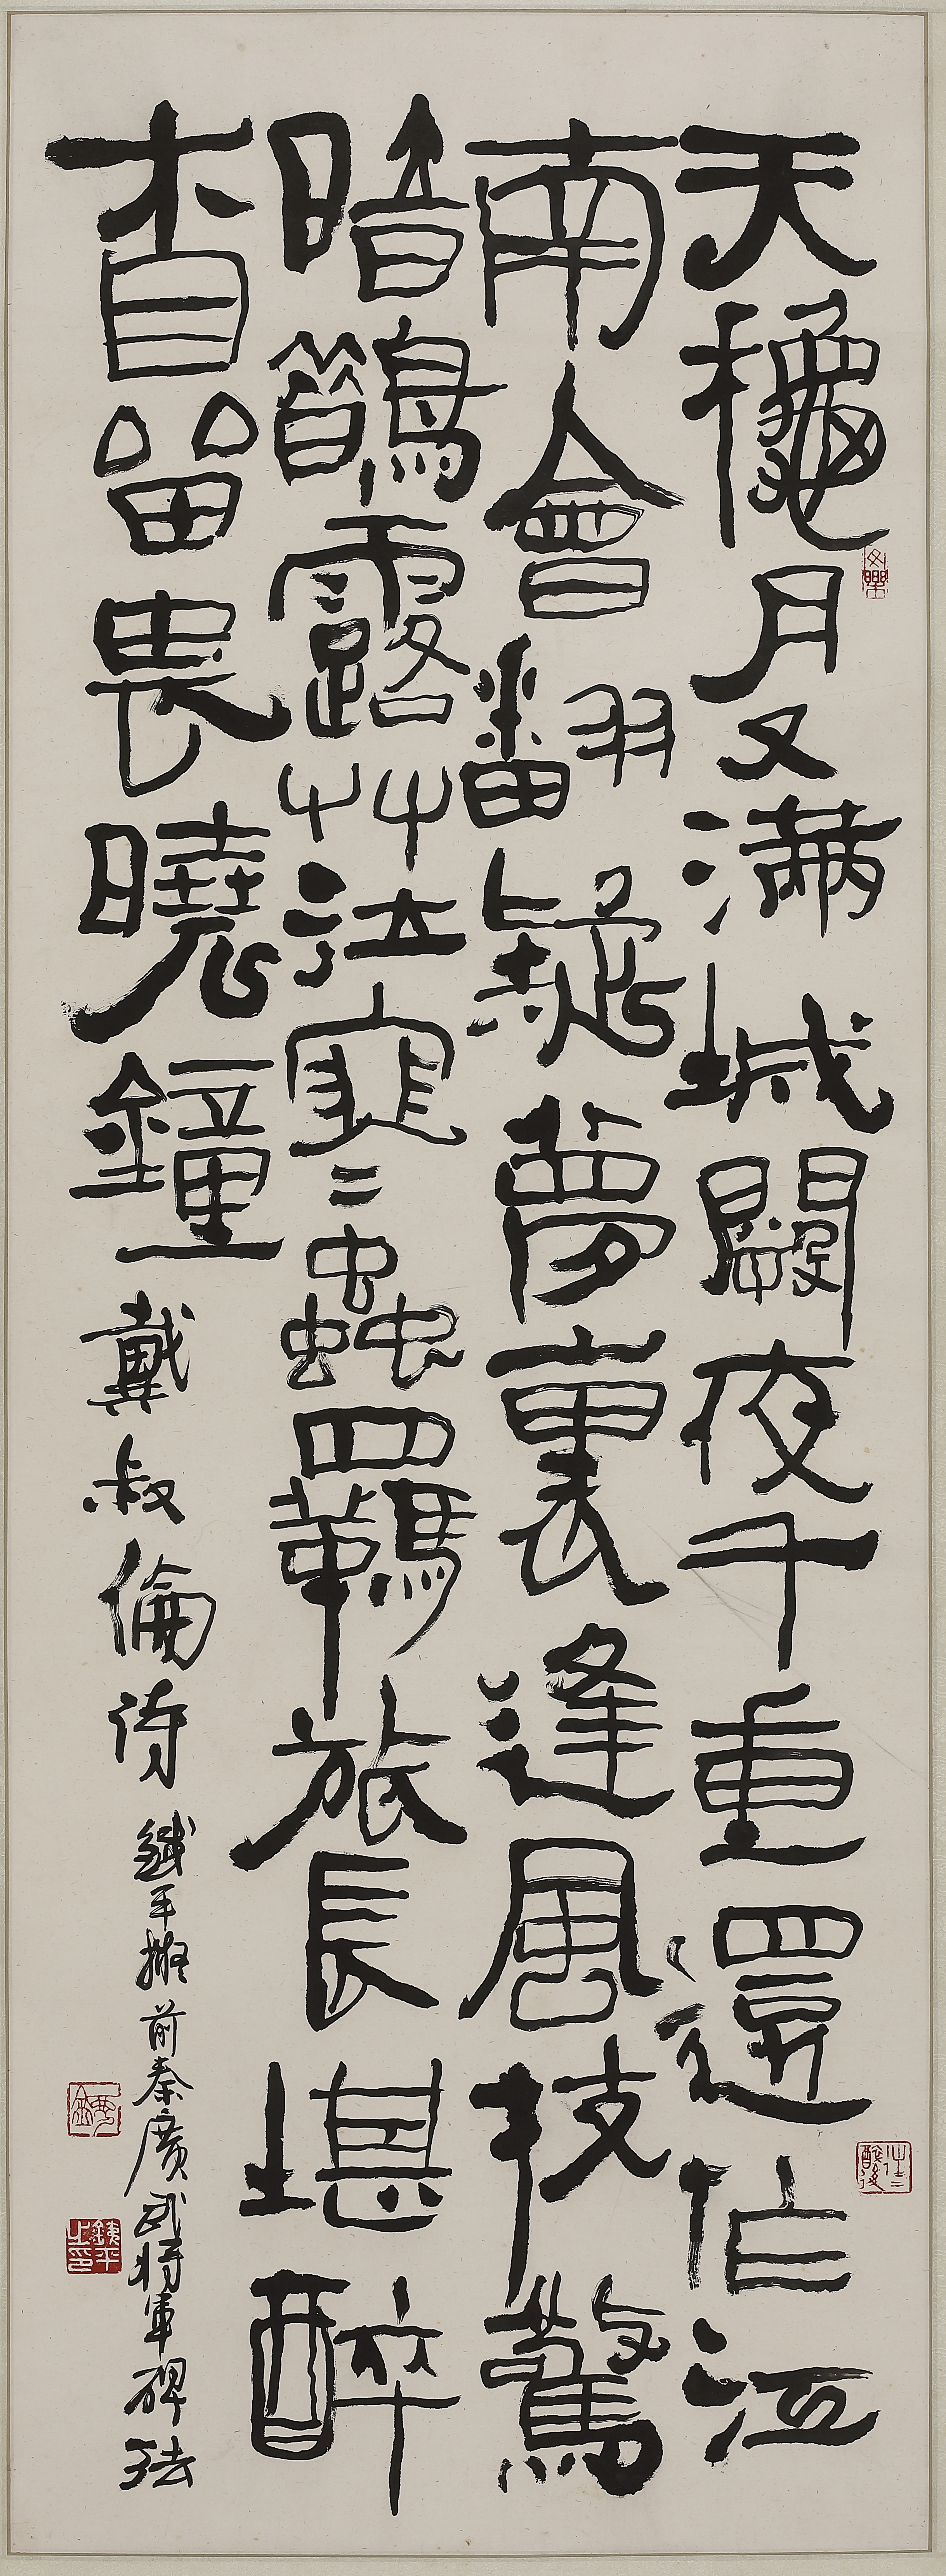 天龝月又滿城闕夜千重還作江
南會翻疑夢裏逢風枝驚
暗鵲露艸泣寒蟲羈旅長堪醉
相留畏曉鐘 戴叔倫詩 鐵平擬前秦廣武將軍碑法
鐵平之印